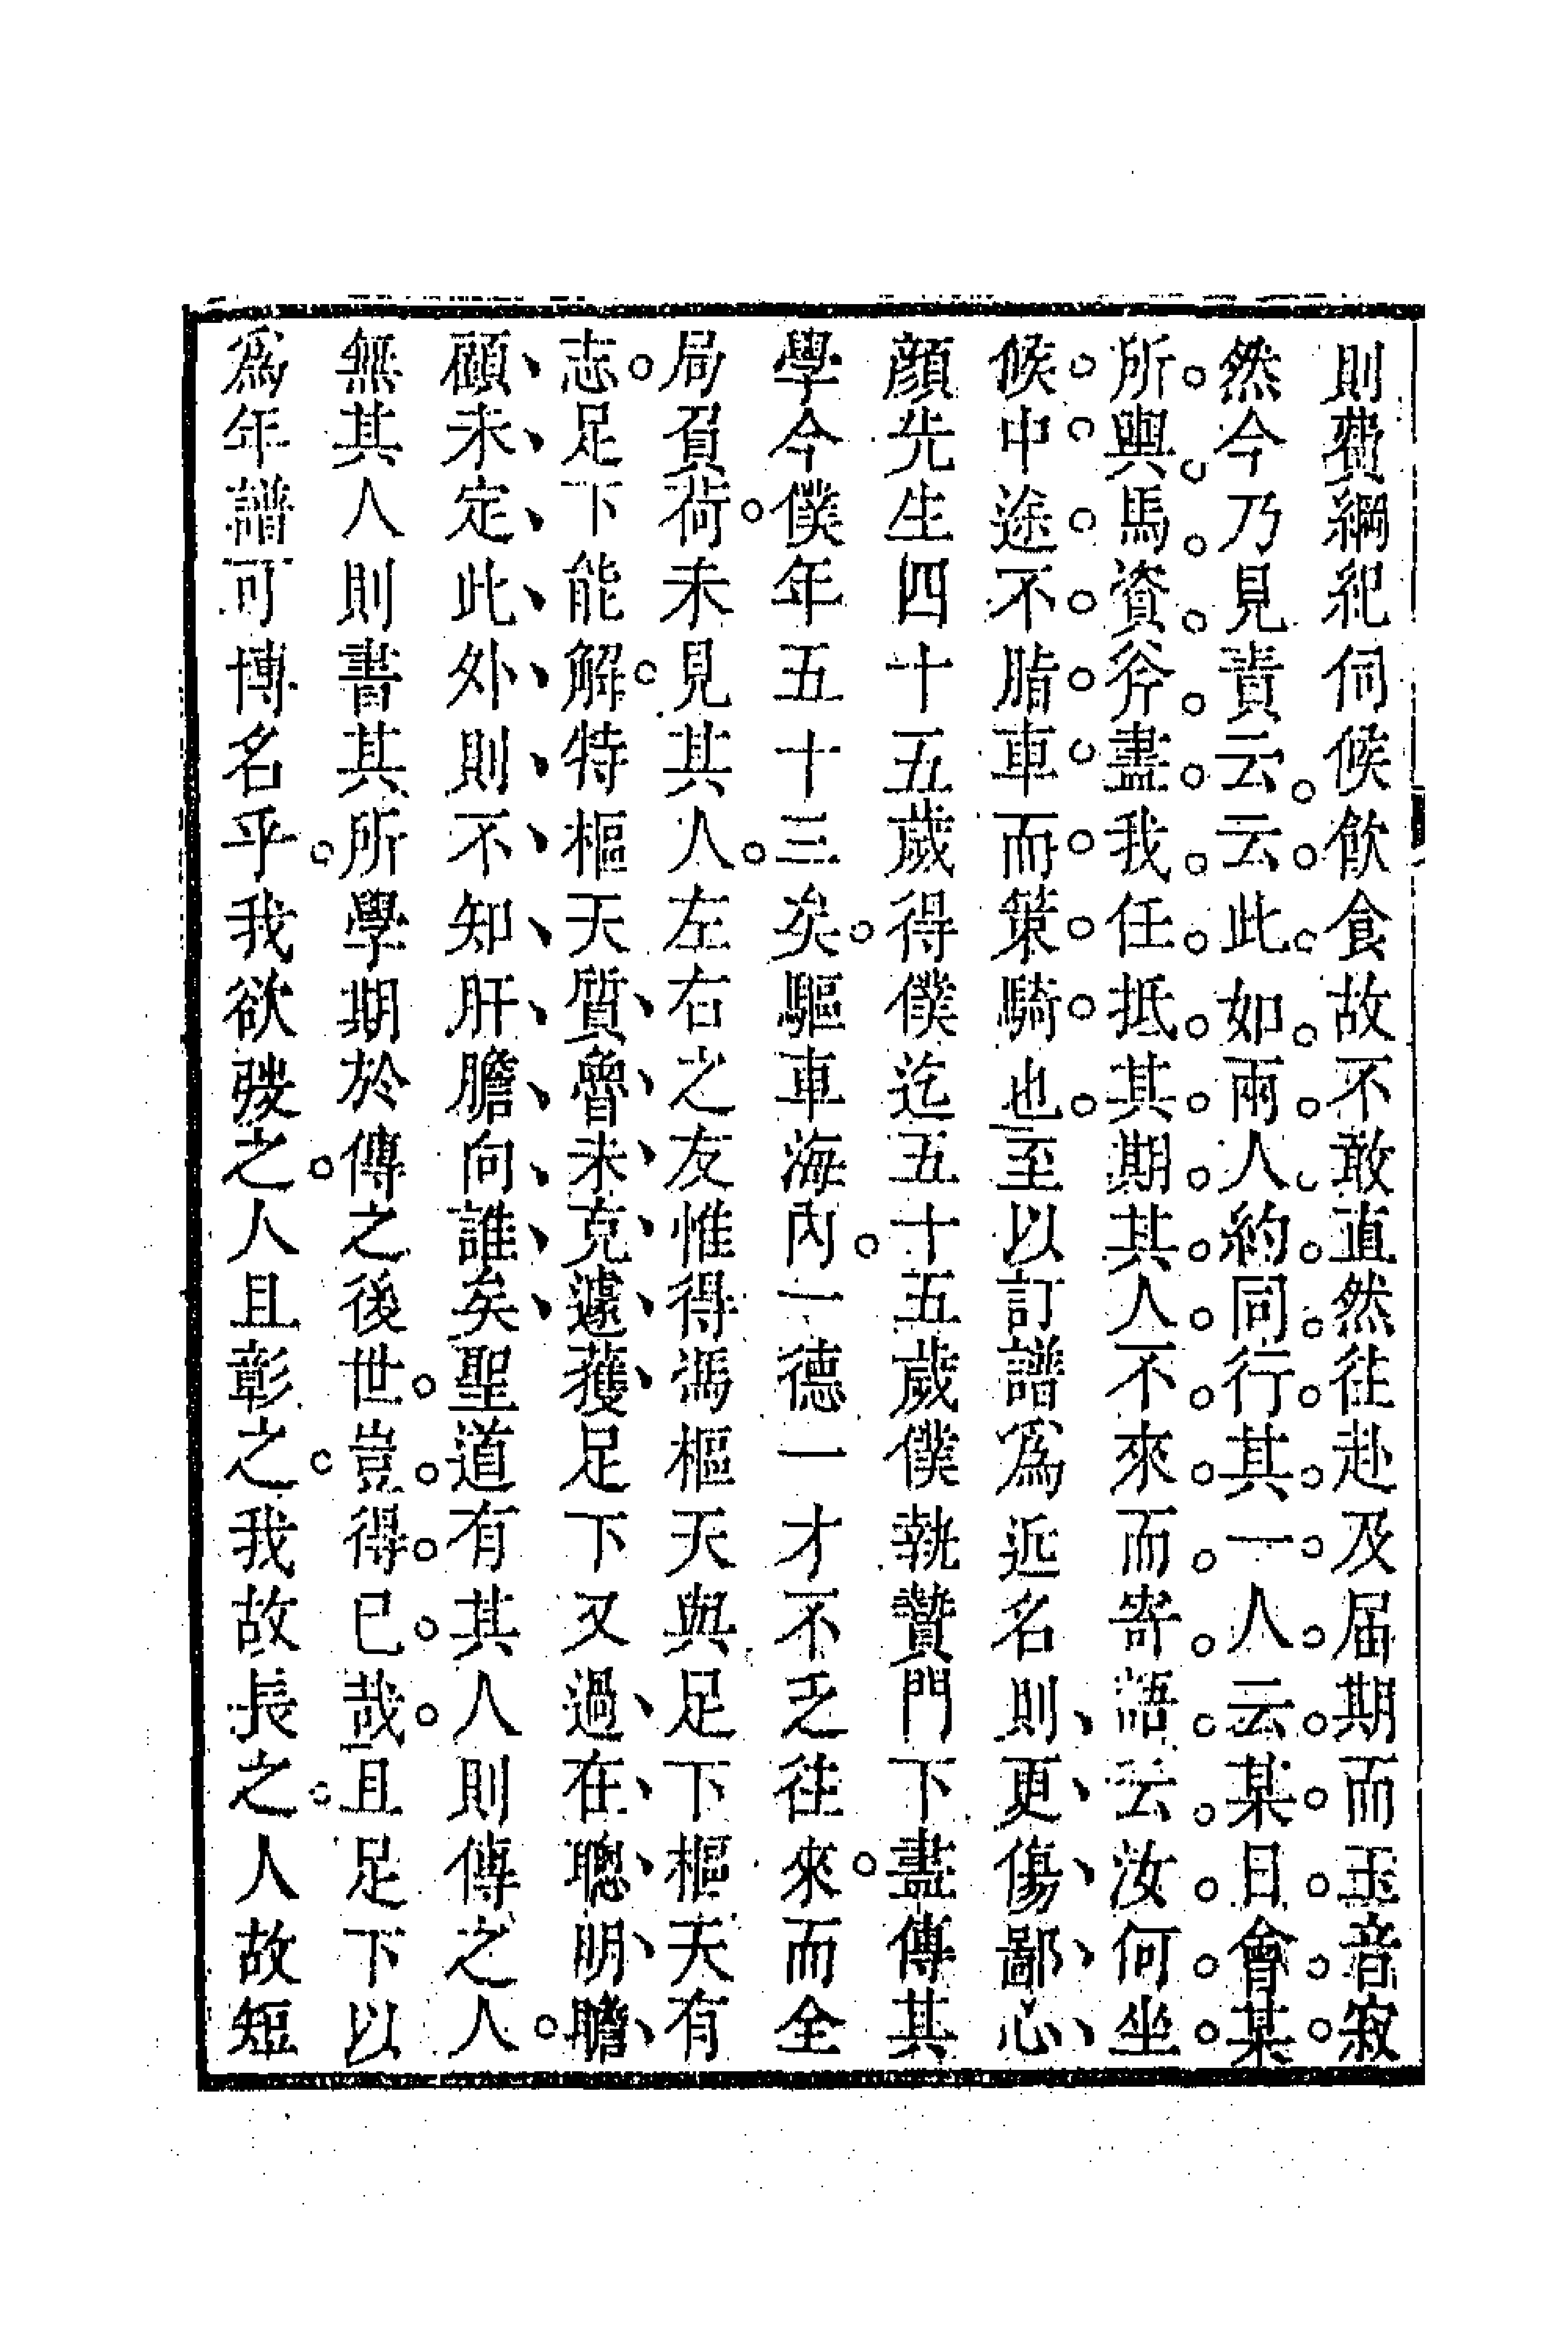 則費綱紀伺候飲食故不敢直然往赴及届期而玉音寂
然今乃見責云云此如兩人約同行其一人云某日會某
所輿馬資斧盡我任抵其期其人不來而寄語云汝何坐
候中途不脂車而策騎也至以訂譜爲近名則更傷鄙心
顏先生四十五歲得僕迄五十五歲僕執贄門下盡傳其
學今僕年五十三矣驅車海內一德一才不乏往來而全
局負荷未見其人左右之友惟得馮樞天與足下樞天有
志足下能解特樞天質魯未克遽獲足下又過在聰明瞻
顧未定此外則不知肝膽向誰矣聖道有其人則傳之人
無其人則書其所學期於傳之後世豈得已哉且足下以
爲年譜可博名乎我欲發之人且彰之我故長之人故短